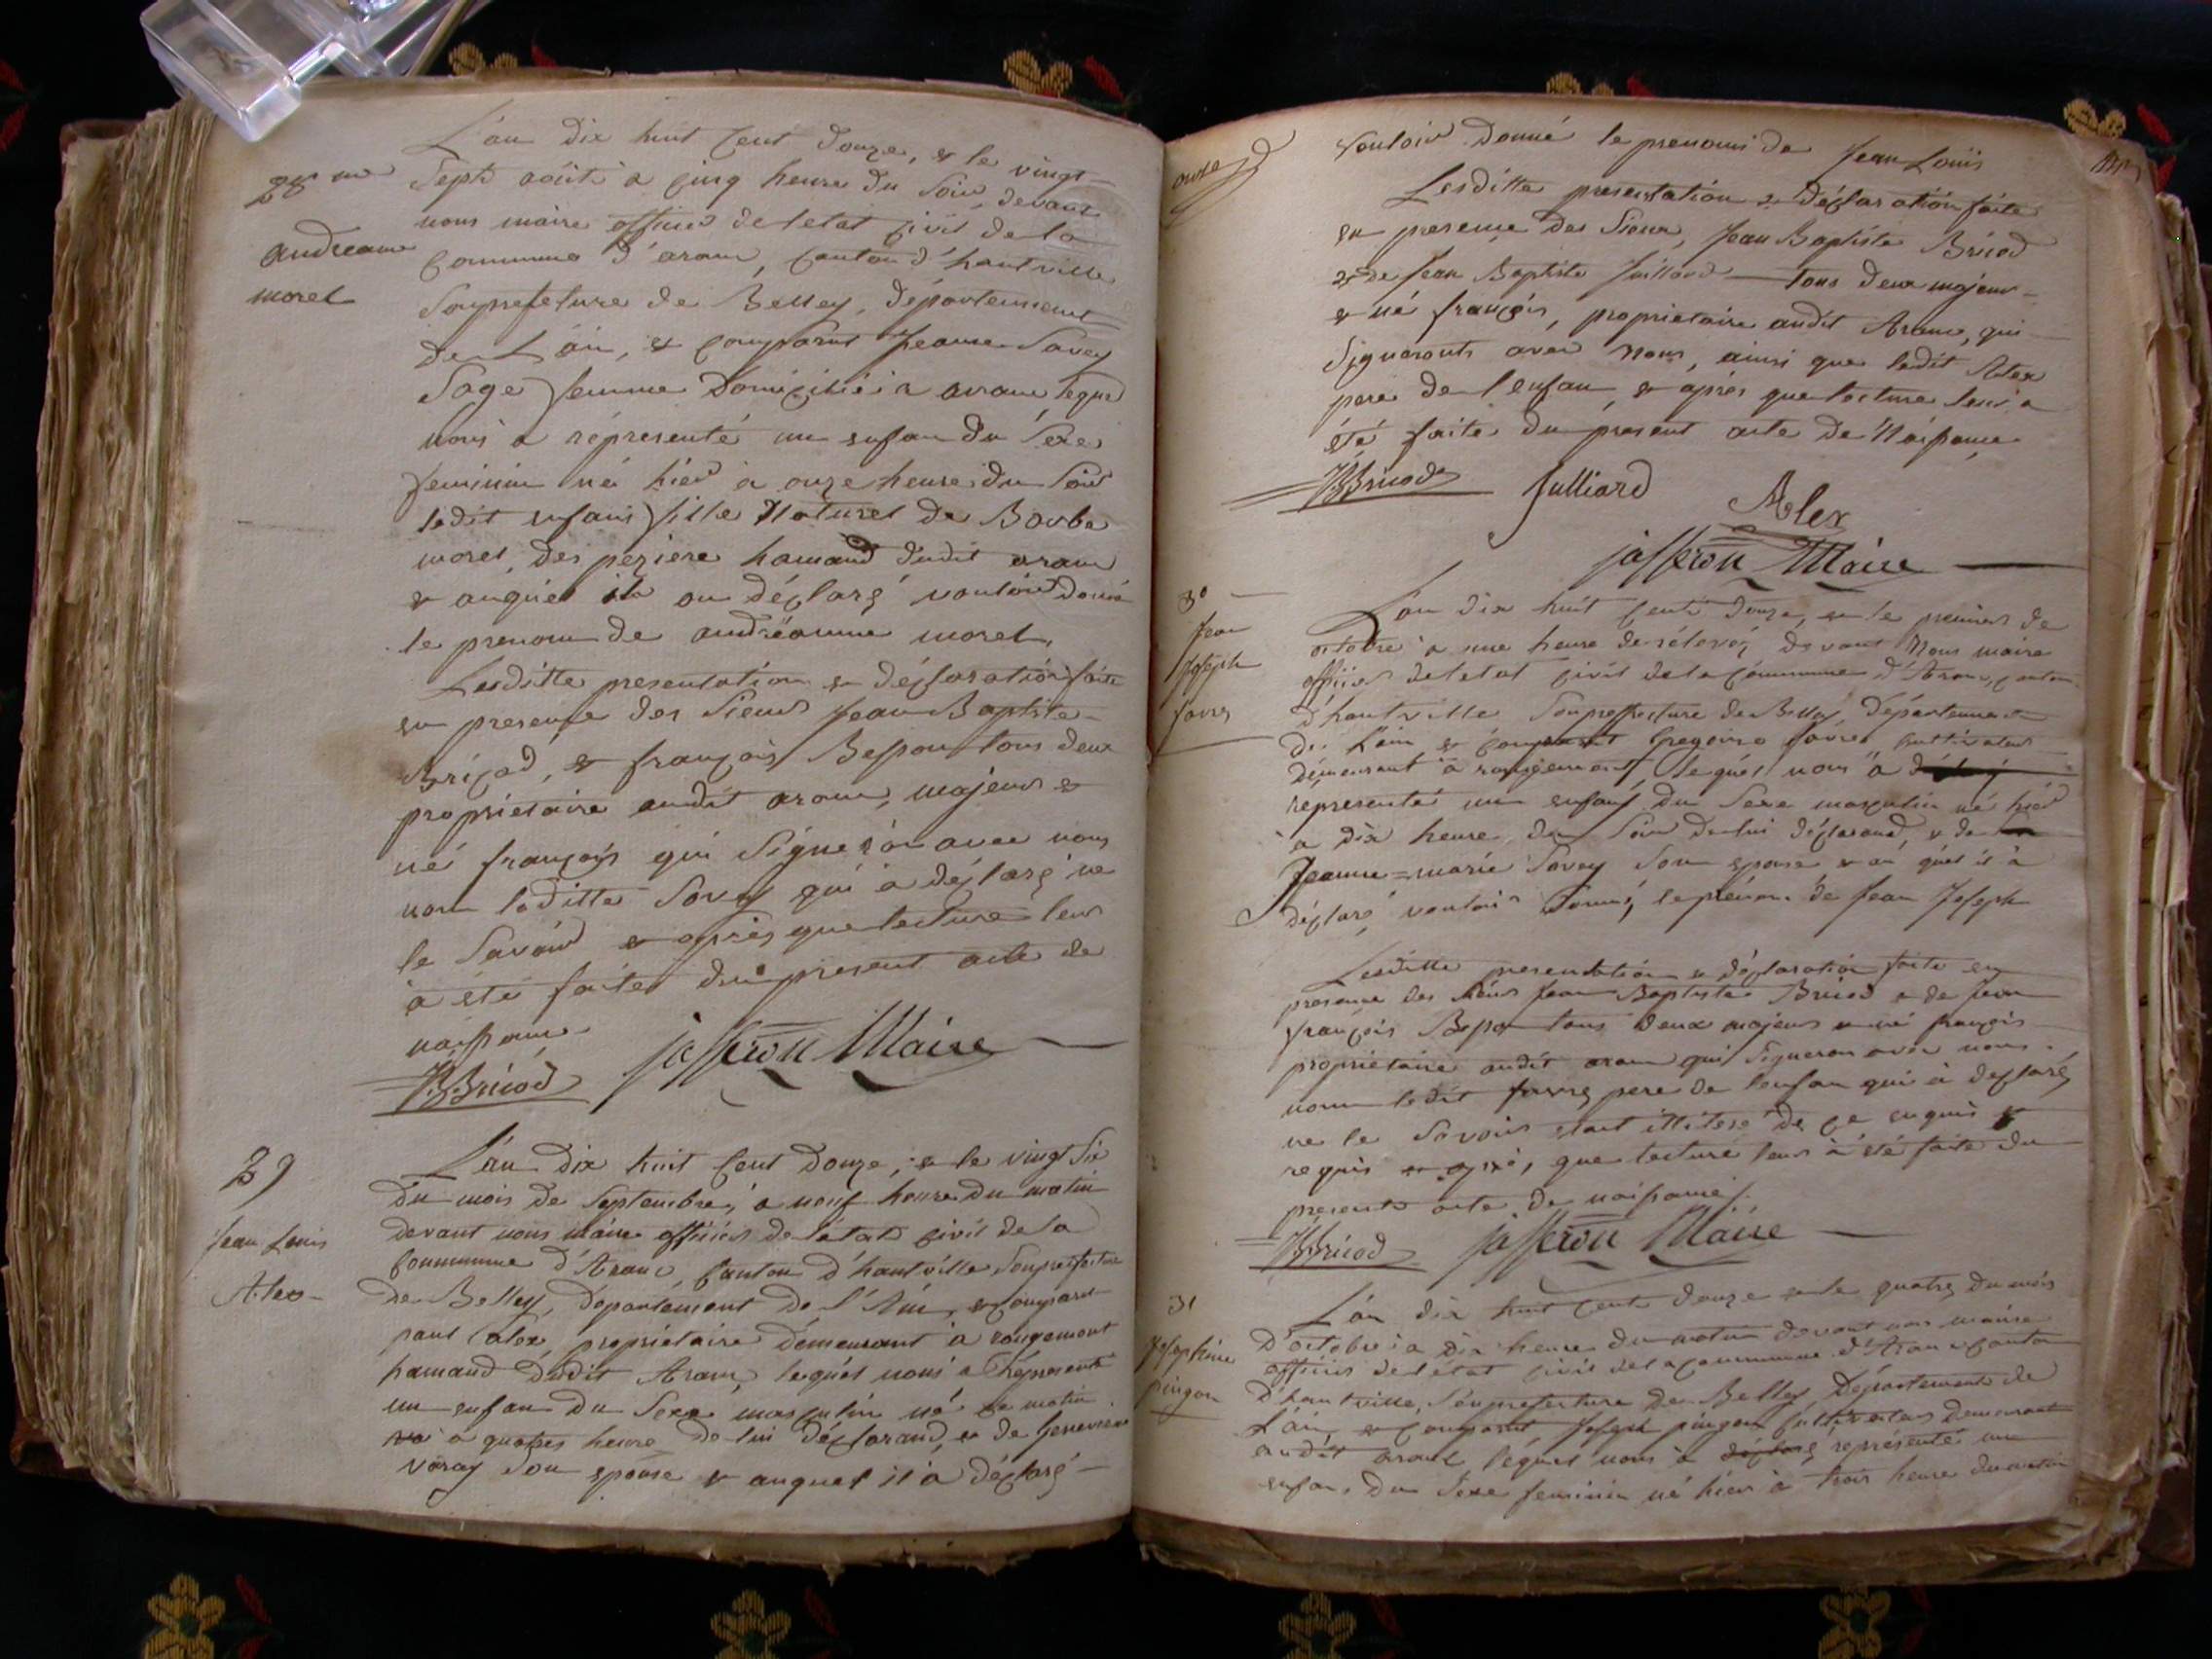 28me
andreanne
morel
L'an dix huit cent douze, & le vingt
Sept aoûti a cinq heure du Soir, devant
nous maire officier de letat civil de la
commune d'aranc, canton d'hautville
Souprefeture de Belley, département
de L'ain, & comparut Jeanne Savey
Sage femme Domicilié a aranc lequel
nous a répresenté un enfan du Sexe
feminin né hier à onze heure du Soir
ledit enfans fille Naturel de Barbe
morel, des peziere hamaud dudit aranc
& auquel il a déclaré vouloir donné
le prenom de andréanne morel,
Lesditte presentation & déclaration faite
en presence des Sieurs Jean Baptiste
Bricod, & françois Besson tous deux
propriétaire audit aranc, majeurs &
né françois qui Signeron avec nous
non laditte Savey qui a déclaré ne
le Savoir & après que lecture leur
à été faite du present acte de
naissance
JBBricod jasseron Maire
29
Jean Louis
Alex
L'an dix huit cent Douze, & le vingt Six
du mois de Septembre, a neuf heure du matin
devant nous maire officier de létat civil de la
Commune d'Aranc, canton d'hautville Souprefecture
de Belley, Département de L'Ain, & comparut
paul alex, propriétaire demeurant à rougemont
hamaud dudit Aranc, lequel nous a réprésenté
un enfan du Sexe masculin né ce matin
a quatres heure de lui déclarand, & de Genevieve
varay Son epouse & auquel il à déclaré
onze
vouloir Donné le prenoms de Jean Louïs
Lesditte presentation & déclaration faite
en presence des Sieurs, Jean Baptiste Bricod
& de Jean Baptiste Juillard tous deux majeur
& né françois, proprietaire audit Aranc, qui
Signeronts avec Nous, ainsi que ledit Alex
pere de l'enfan, & après que lecture leur a
été faite du present acte de Naissance
JBBricod Julliard Alex
jasseron Maire
30
Jean
Joseph
favre
L'an dix huit cent douze, & le premier de
octobre a une heure de rélevé, devant Nous maire
officier de letat civil de la commune d'Aranc, canton
d'hautville Souprefecture de Belley, Département
de L'ain & comparut Gregoire favre, cultivateur
Démeurant à rougemont, lequel nous a
representé un enfans du Sexe masculin né hier
a dix heure du Soir de lui déclarand, & de
Jeanne=marie Savey Son epouse & au quel il à
déclaré vouloir Donné, le prénom de Jean Joseph
Lesditte presentation & déclaration faite en
presence des Sieurs Jean Baptiste Bricod & de Jean
françois Besson tous deux majeurs & né françois
propriétaire audit aranc qui Signeron avec nous
non ledit favre pere de lenfan qui à déclaré
ne le Savoir etant illiteré de ce enquis &
requis & après, que lecture leurs à été faite du
present acte de naissance
JBBricod jasseron Maire
31
Josephine
pingon
L'an dix huit cent douze & le quatre du mois
D'octobre a dix heure du matin devant nous maire
officier de létat civil de la commune d'Aranc canton
D'hautville, Souprefecture de Belley, Département de
L'ain, & comparut Joseph pingon cultivateur demeurant
audit aranc léquel nous à déclaré représenté un
enfan, du Sexe feminin né hier à trois heure du matin